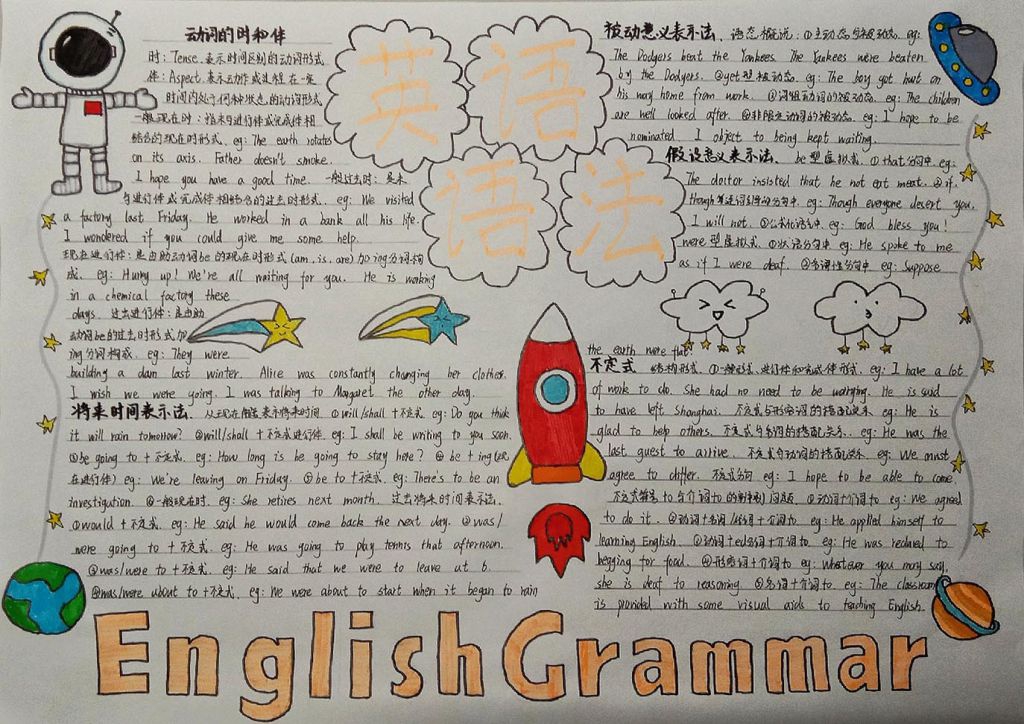 英语
语法
动词的时和体
时：Tense. 表示时间区别的动词形式
体：Aspect. 表示动作或过程在一定
时间内处于何种状态的动词形式
一般现在时：指未与进行体或完成体相
结合的现在时形式. eg: The earth rotates
on its axis. Father doesn't smoke.
I hope you have a good time. 一般过去时：是未
与进行体或完成体相结合的过去时形式. eg: We visited
a factory last Friday. He worked in a bank all his life.
I wondered if you could give me some help.
现在进行体：是由助动词be的现在时形式(am. is. are)加ing分词构
成. eg: Hurry up! We're all waiting for you. He is working
in a chemical factory these
days. 过去进行体：是由助
动词be的过去时形式加
ing分词构成. eg: They were
building a dam last winter. Alice was constantly changing her clothes.
I wish we were going. I was talking to Margaret the other day.
将来时间表示法. 从现在角度表示将来时间. ①will/shall+不定式. eg: Do you think
it will rain tomorrow? ②will/shall+不定式进行体. eg: I shall be writing to you soon.
③be going to+不定式. eg: How long is he going to stay here? ④be+ing(现
在进行体) eg: We're leaving on Friday. ⑤be to+不定式. eg: There's to be an
investigation. ⑥一般现在时. eg: She retires next month. 过去将来时间表示法.
①would+不定式. eg: He said he would come back the next day. ②was/
were going to+不定式. eg: He was going to play tennis that afternoon.
③was/were to+不定式. eg: He said that we were to leave at 6.
④was/were about to+不定式. eg: We were about to start when it began to rain
被动意义表示法. 语态概说：①主动态与被动态. eg:
The Dodgers beat the Yankees. The Yankees were beaten
by the Dodgers. ②get型被动态. eg: The boy got hurt on
his way home from work. ③词组动词的被动态. eg: The children
are well looked after. ④非限定动词的被动态. eg: I hope to be
nominated. I object to being kept waiting.
假设意义表示法. be型虚拟式. ①that分句中. eg:
The doctor insisted that he not eat meat. ②if.
though等连词引导的分句中. eg: Though everyone desert you,
I will not. ③公式化语句中. eg: God bless you!
were型虚拟式. ①状语分句中 eg: He spoke to me
as if I were deaf. ②名词性分句中 eg: Suppose
the earth were flat.
不定式 结构形式. ①一般形式、进行体和完成体形式. eg: I have a lot
of work to do. She had no need to be worrying. He is said
to have left Shanghai. 不定式与形容词的搭配关系 eg: He is
glad to help others. 不定式与名词的搭配关系. eg: He was the
last guest to arrive. 不定式与动词的搭配关系. eg: We must
agree to differ. 不定式分句 eg: I hope to be able to come.
不定式符号to与介词to的 问题 ①动词+介词to eg: We agreed
to do it. ②动词+名词/ +介词to eg: He applied himself to
learning English. ③动词+ed分词+介词to. eg: He was reduced to
begging for food. ④形容词+介词to eg: Whatever you may say,
she is deaf to reasoning. ⑤名词+介词to. eg: The classroom
is provided with some visual aids to teaching English.
English Grammar